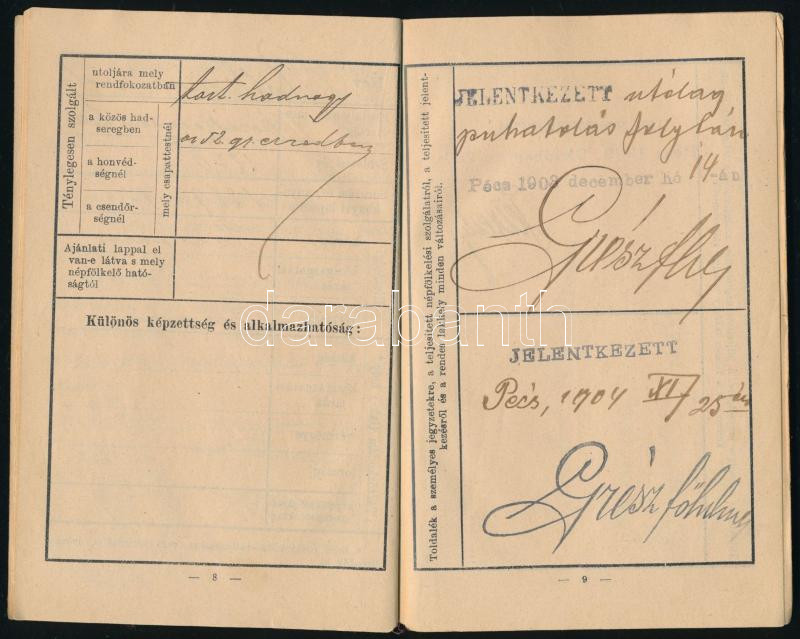 Ténylegesen szolgált
utoljára mely
rendfokozatban
tart. hadnagy
a közös had-
seregben
a honvéd-
ségnél
a csendőr-
ségnél
mely csapattestnél
52. gy. ezredben
Ajánlati lappal el
van-e látva s mely
népfölkelő ható-
ságtól
Különös képzettség és alkalmazhatóság:
— 8 —
Toldalék a személyes jegyzetekre, a teljesített népfölkelési szolgálatról, a teljesített jelent-
kezésről és a rendes lakhely minden változásairól.
JELENTKEZETT utólag
puhatolás folytán
Pécs 1903 december hó 14-én
Grész
JELENTKEZETT
Pécs, 1904 XI/25 én
Grész főhdngy
— 9 —
darabanth